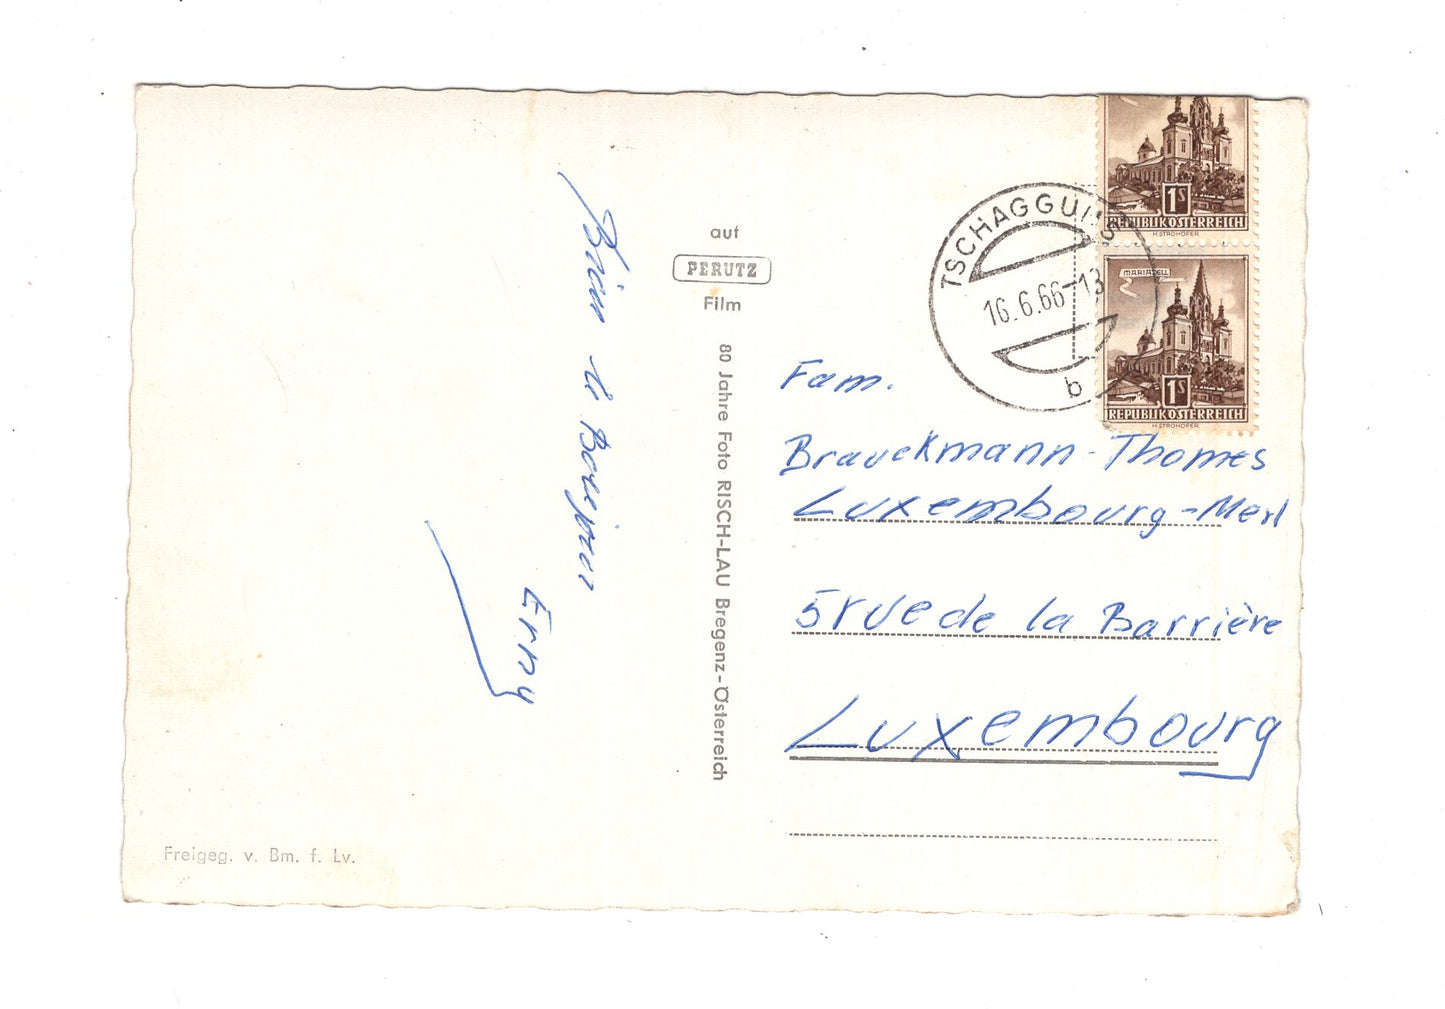 auf
PERUTZ
Film
80 Jahre Foto RISCH-LAU Bregenz-Österreich
Erny
Freigeg. v. Bm. f. Lv.
1S
REPUBLIK ÖSTERREICH
H.STROHOFER
MARIAZELL
1S
REPUBLIK ÖSTERREICH
H.STROHOFER
TSCHAGGUNS
16.6.66-13
b
Fam.
Brauckmann-Thomes
Luxembourg-Merl
5 rue de la Barrière
Luxembourg